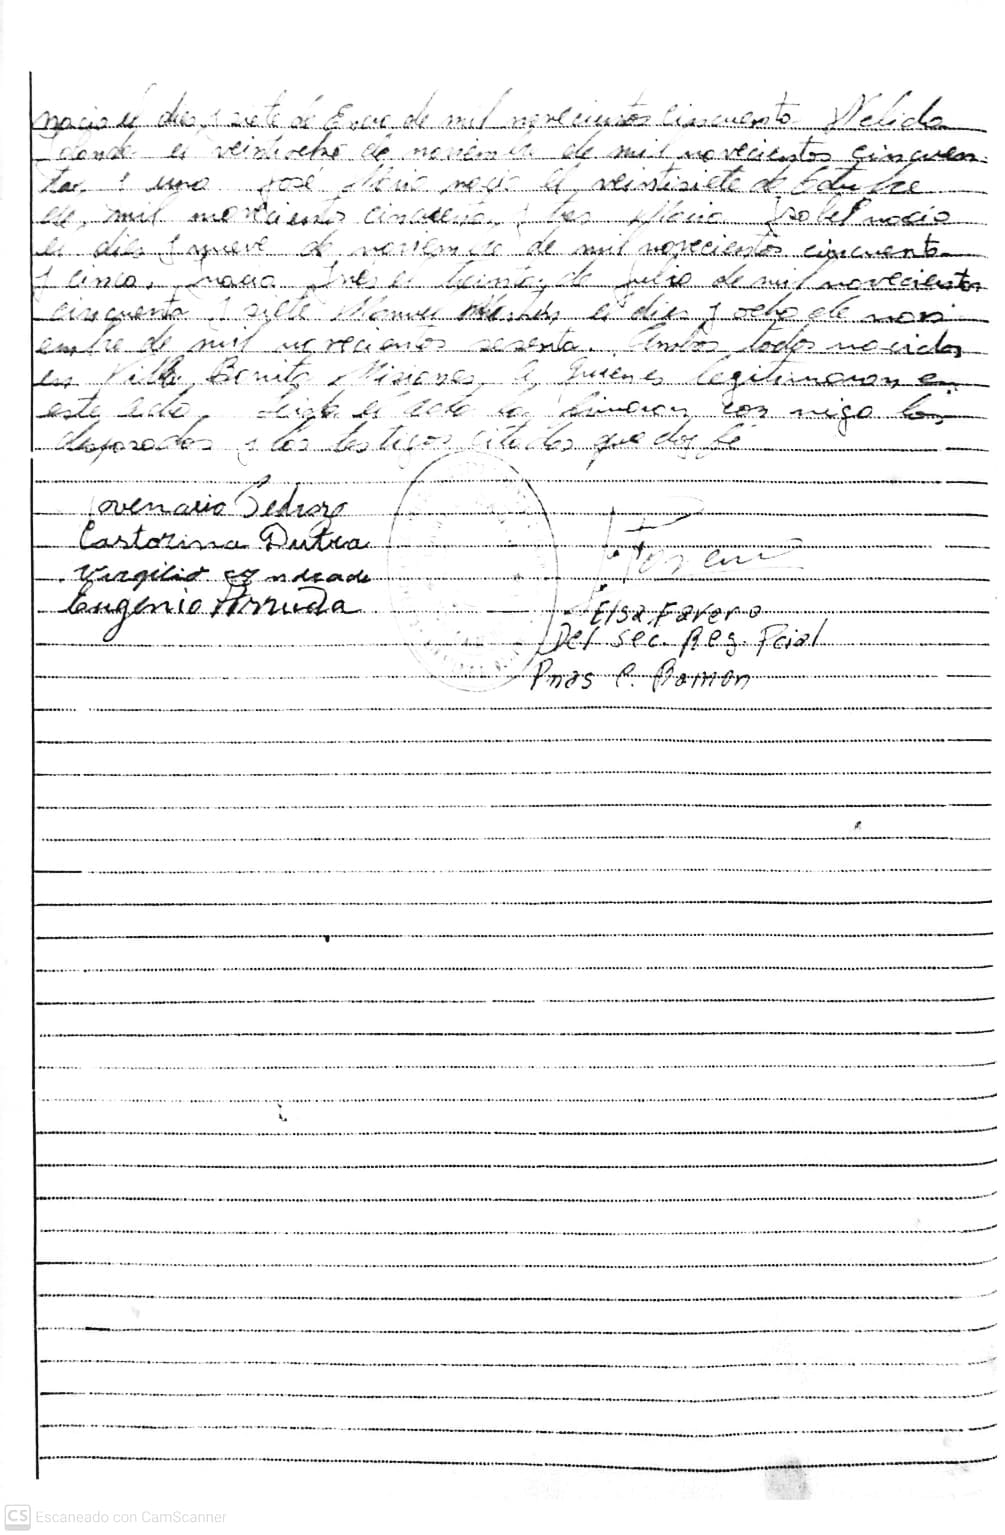 nacio el dies y siete de Enero de mil novecientos cincuenta Nelida
el veintiocho de noviembre de mil novecientos cincuen-
ta y uno José Maria nacio el veintisiete de Octubre
de mil novecientos cincuenta y tres Maria Isabel nacio
el dies y nueve de noviembre de mil novecientos cincuenta
y cinco, nacio Ines el treinta de Julio de mil novecientos
cincuenta y siete Manuel el dies y ocho de novi
embre de mil novecientos sesenta. Ambos todos nacidos
en Villa Bonita Misiones, a quienes legitimaron en
este acto. el acta la firmaron con migo los
desposados y los testigos citados que doy fé
Jovenario Pedrozo
Castorina Dutra
Virgilio Andrade
Eugenio Arruda
Elsa Favero
Del Sec. Reg. Pcial
Pnas C. Ramon
CS Escaneado con CamScanner